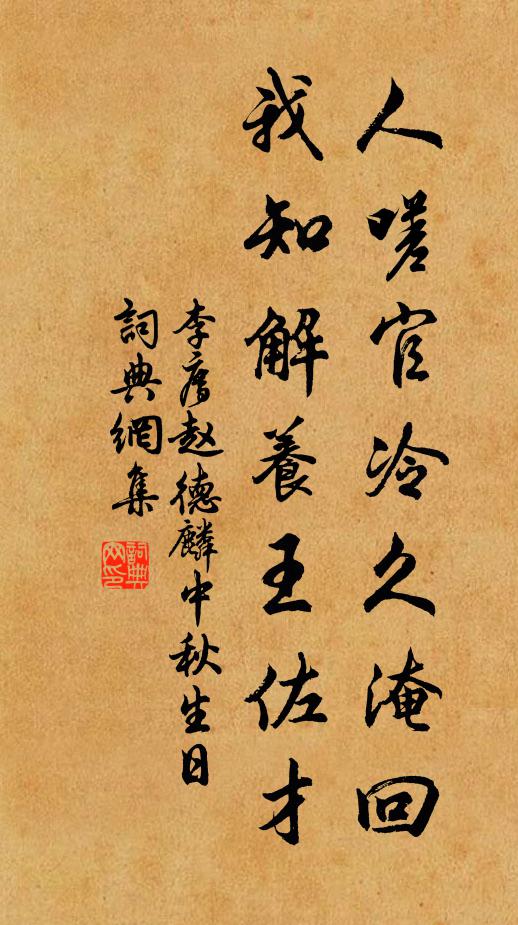 人嗟官冷久淹回
我知解養王佐才
李廌赵德麟中秋生日
詞典網集
詞典
网印